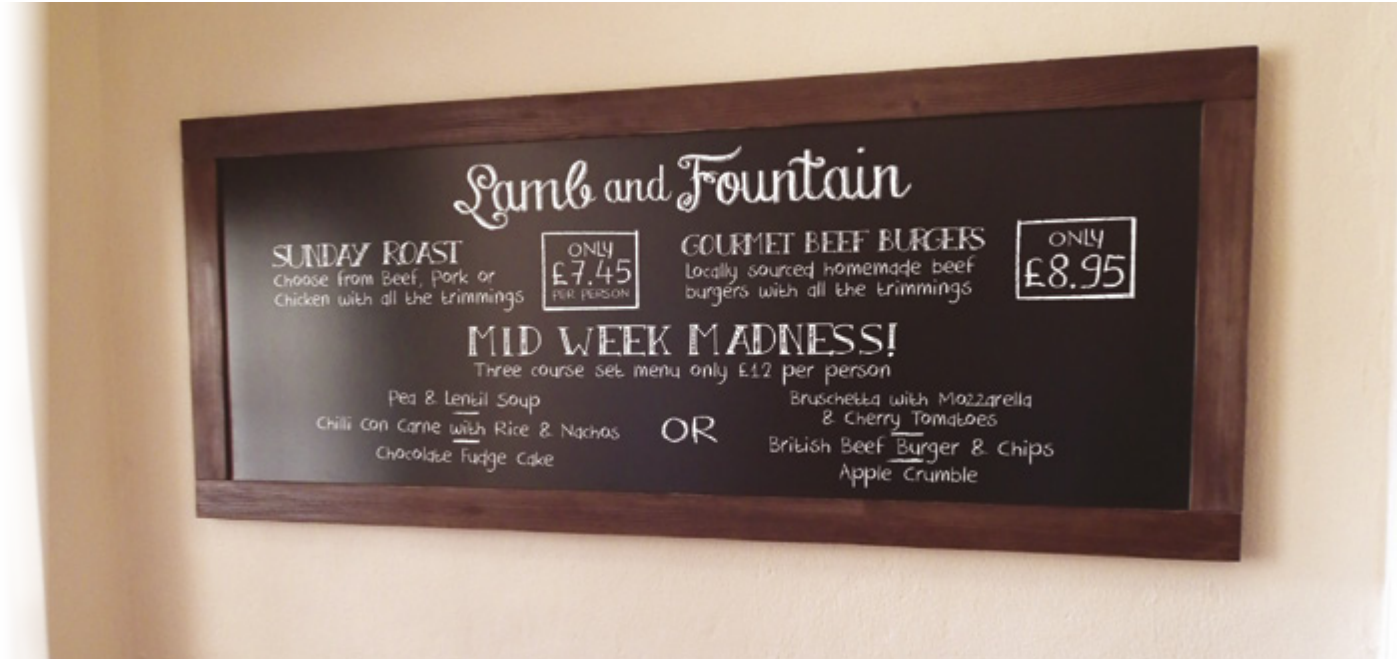 Lamb and Fountain
SUNDAY ROAST
Choose from Beef, Pork or
Chicken with all the trimmings
ONLY
£7.45
PER PERSON
GOURMET BEEF BURGERS
Locally sourced homemade beef
burgers with all the trimmings
ONLY
£8.95
MID WEEK MADNESS!
Three course set menu only £12 per person
Pea & Lentil Soup
Chilli Con Carne with Rice & Nachos
Chocolate Fudge Cake
OR
Bruschetta with Mozzarella
& Cherry Tomatoes
British Beef Burger & Chips
Apple Crumble